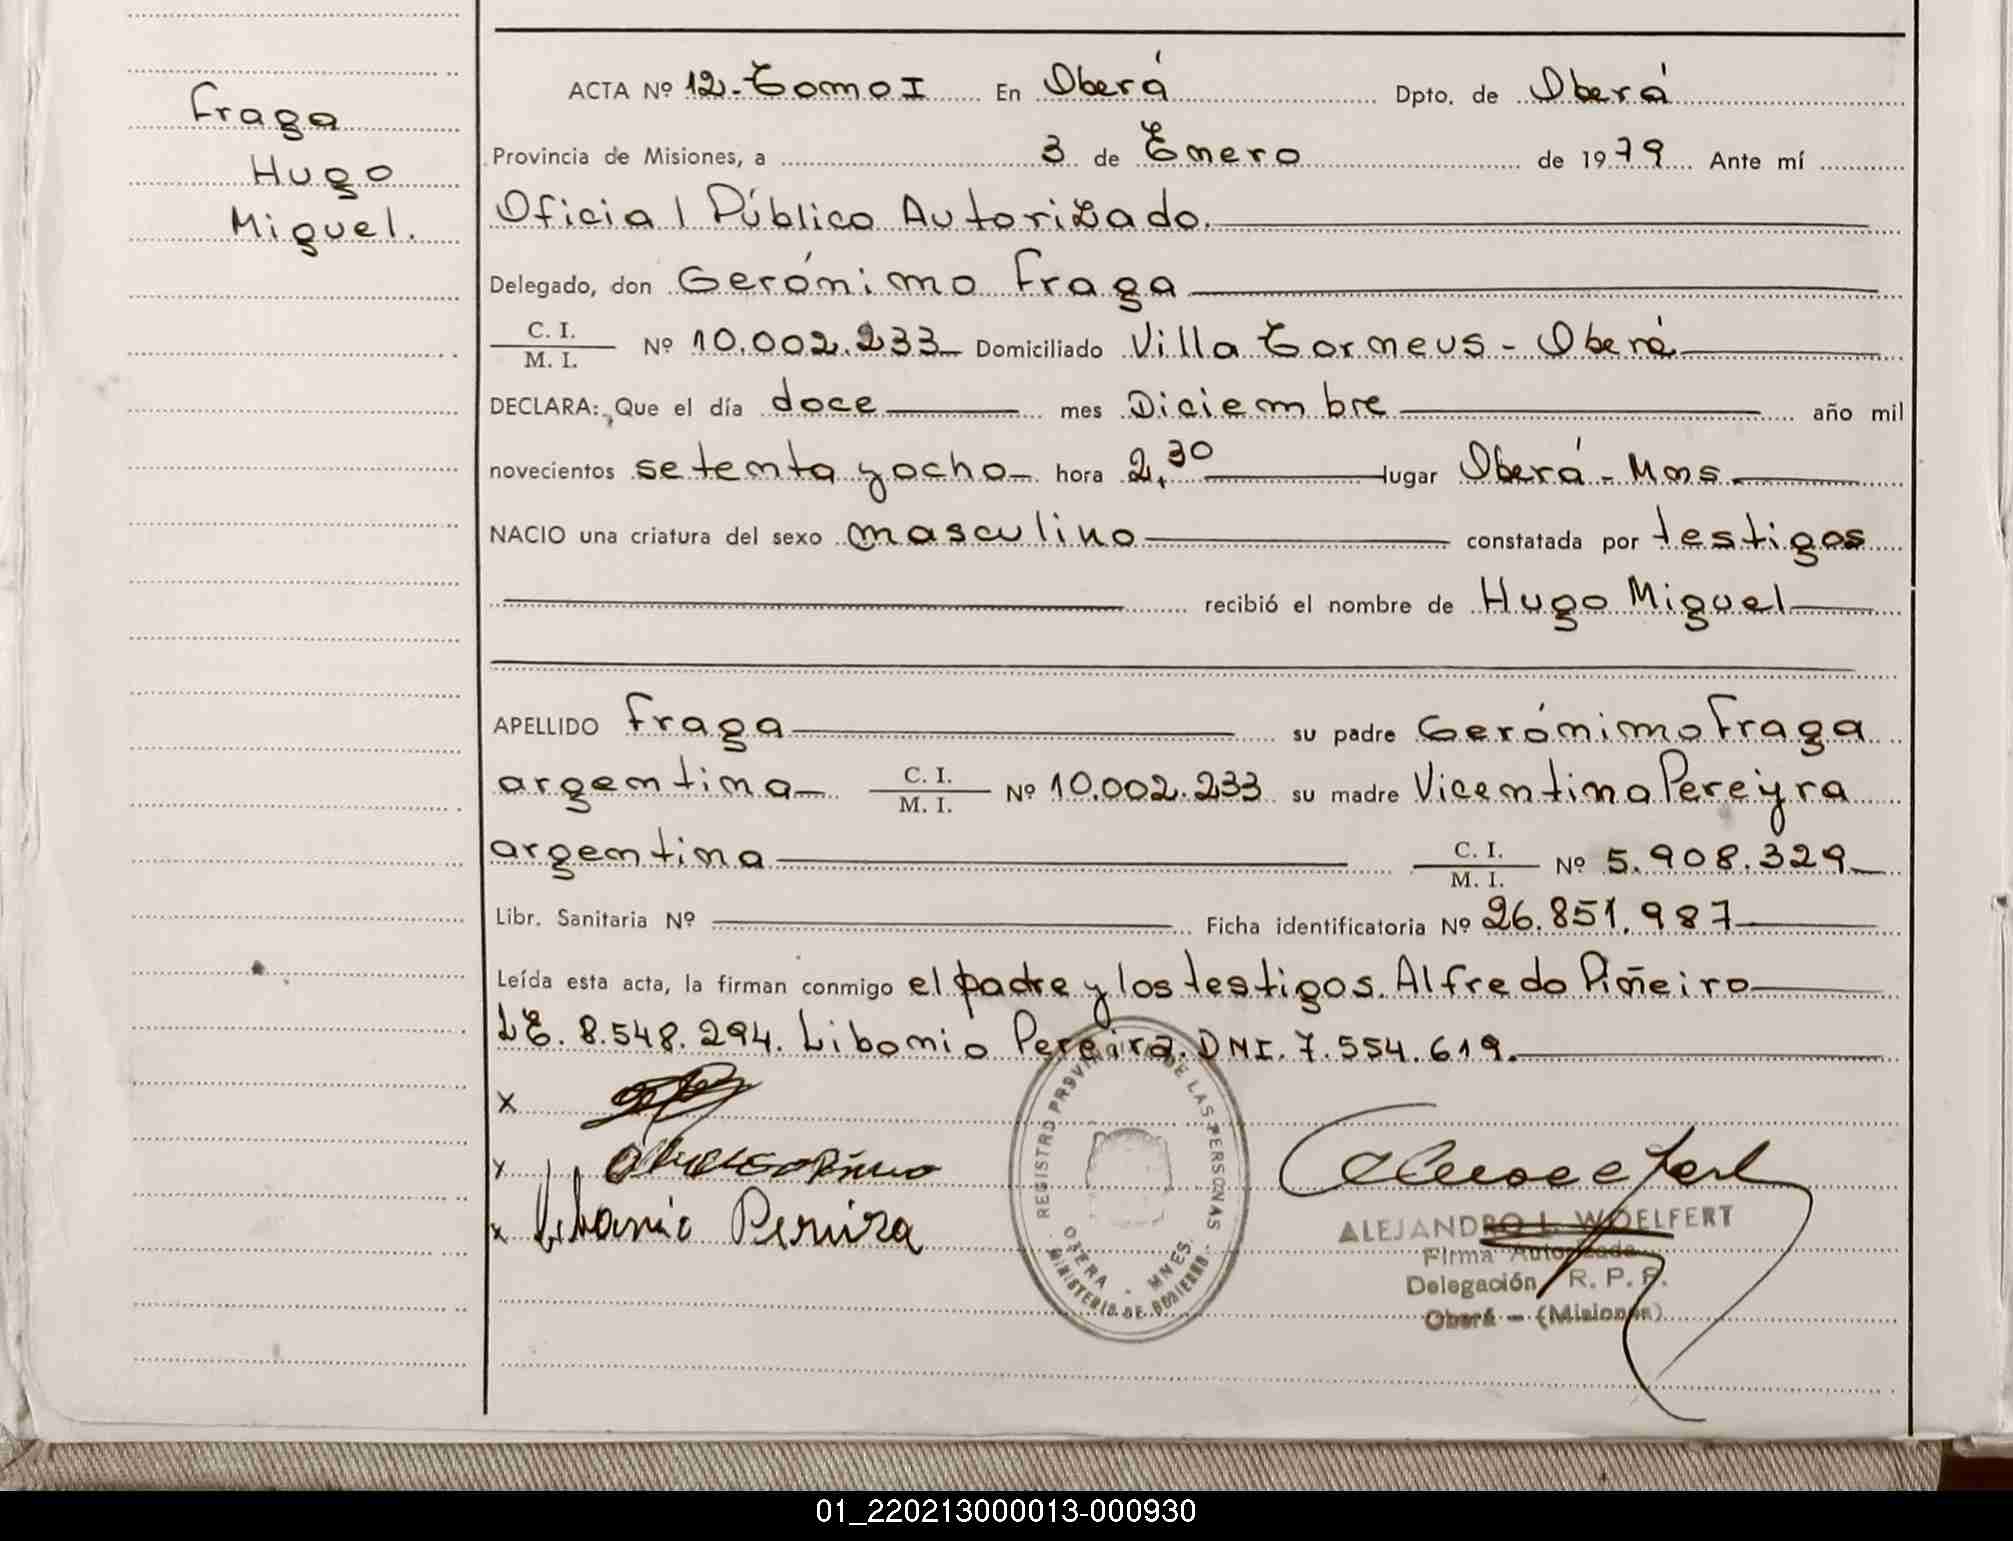 Fraga
Hugo
Miguel.
ACTA Nº 12-Tomo I En Oberá Dpto. de Oberá
Provincia de Misiones, a 3 de Enero de 1979 Ante mí
Oficial Público Autorizado.
Delegado, don Gerónimo Fraga
C. I.
M. I.
Nº 10.002.233 Domiciliado Villa Tormeus - Oberá
DECLARA: Que el día doce mes Diciembre año mil
novecientos setenta y ocho hora 2,30 lugar Oberá - Mns.
NACIO una criatura del sexo masculino constatada por testigos
recibió el nombre de Hugo Miguel
APELLIDO Fraga su padre Gerónimo Fraga
argentina C. I. M. I. Nº 10.002.233 su madre Vicentina Pereyra
argentina C. I. M. I. Nº 5.908.329
Libr. Sanitaria Nº Ficha identificatoria Nº 26.851.987
Leída esta acta, la firman conmigo el padre y los testigos. Alfredo Piñeiro
LE. 8.548.294. Libonio Pereira. DNI. 7.554.619.
x
x
x Pereira
REGISTRO PROVINCIAL DE LAS PERSONAS
OBERA - MNES.
MINISTERIO DE GOBIERNO
ALEJANDRO L. WOELFERT
Firma Autorizada
Delegación R. P. P.
Oberá - (Misiones)
01_220213000013-000930